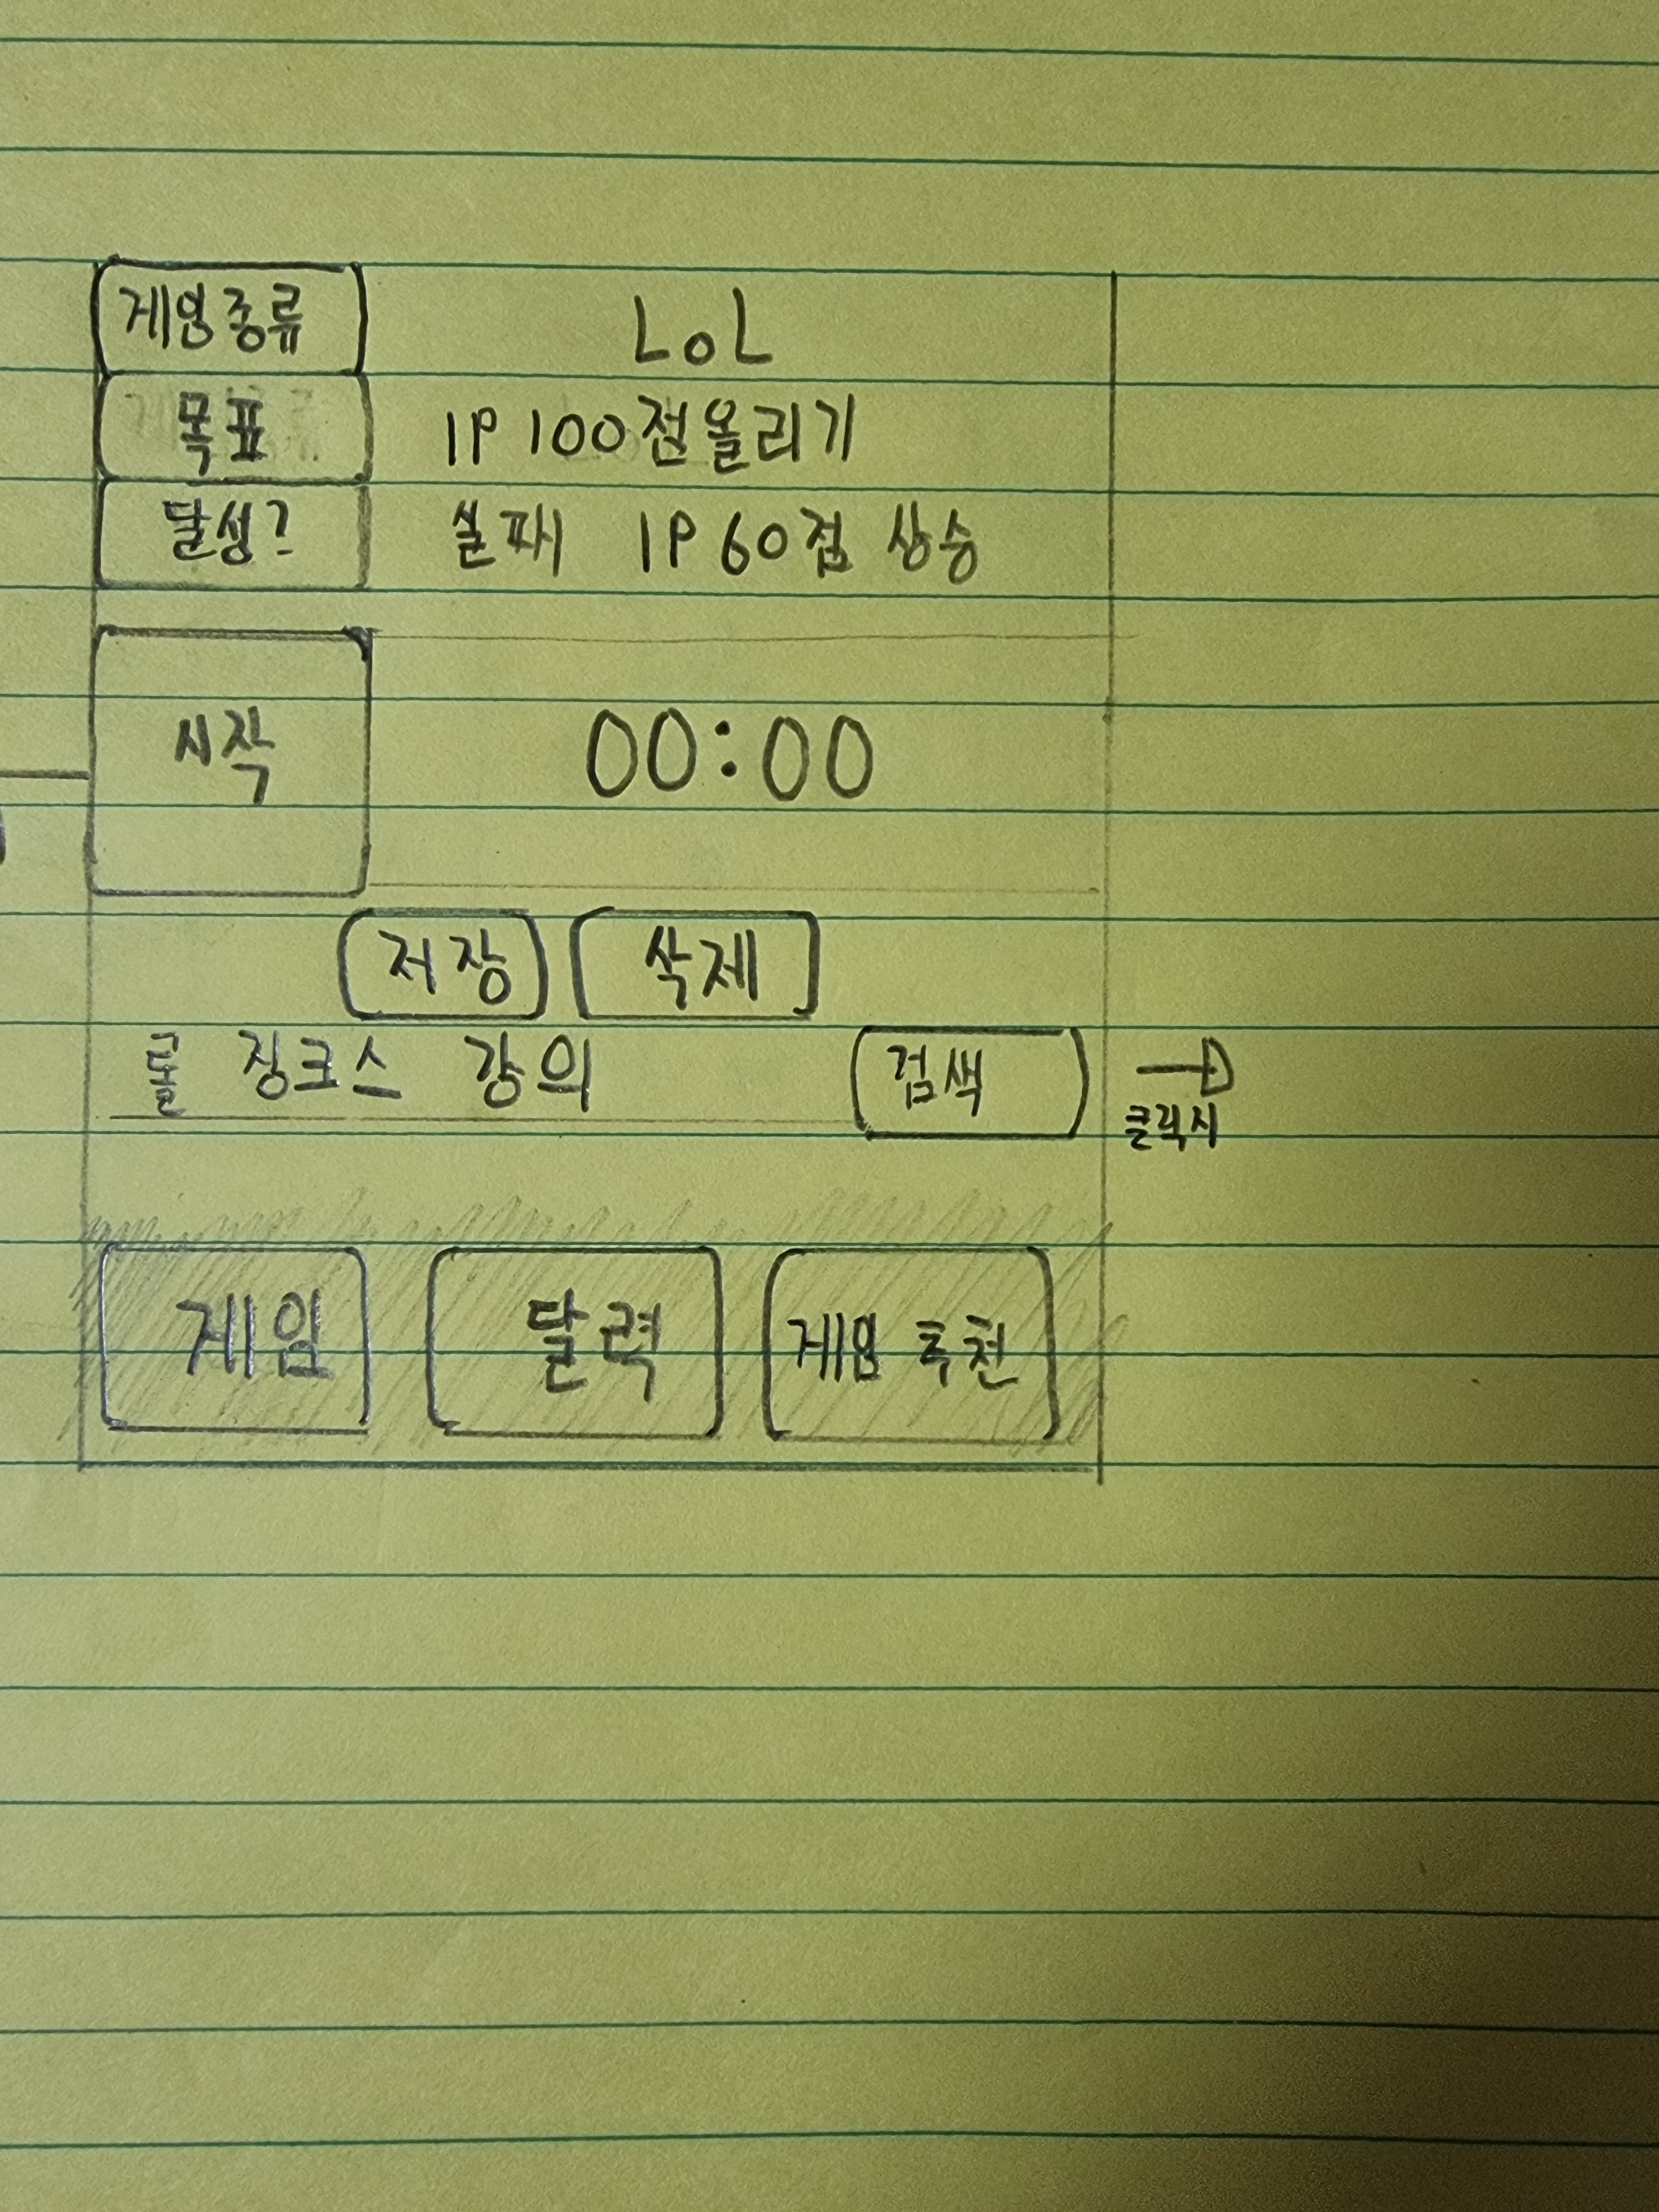 게임종류 LoL
목표 IP 100점올리기
달성? 실패 IP 60점 상승
시작 00:00
저장 삭제
롤 징크스 강의 검색
클릭시
게임 달력 게임 추천